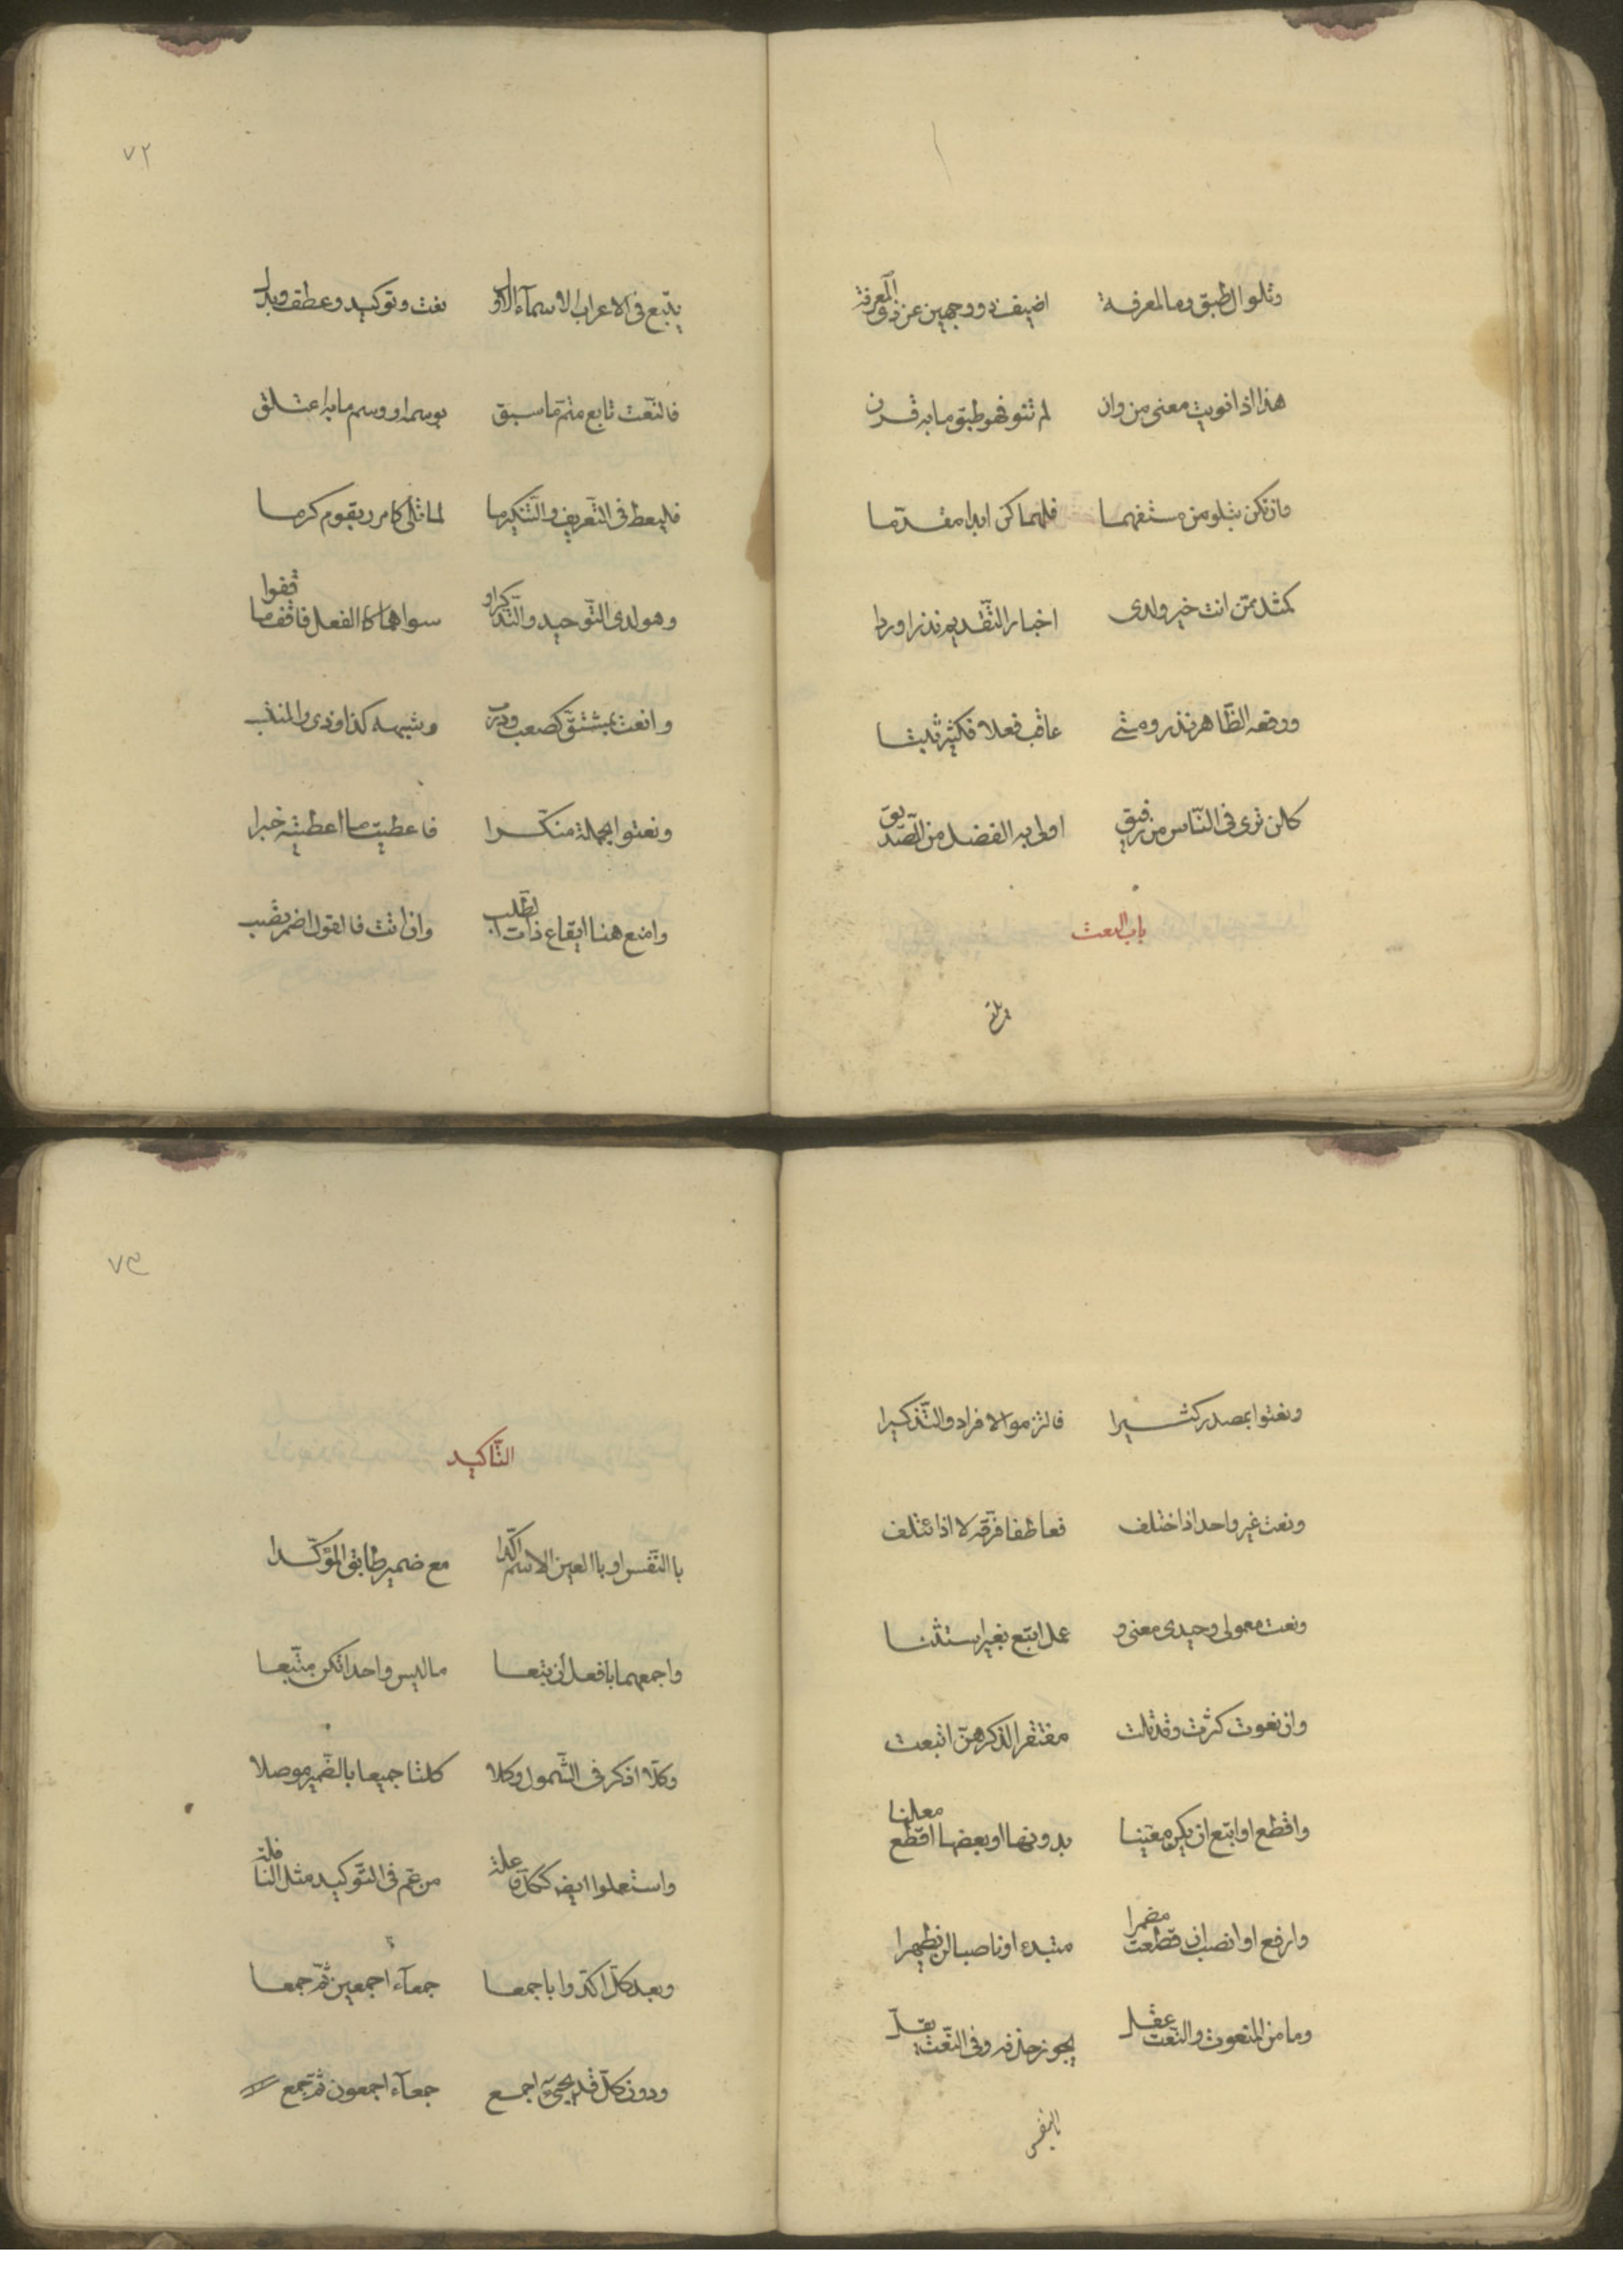 وتلو ال طبق وما لمعرفة اضيف ذو وجهين عن ذى المعرفة
هذا اذا نويت معنى من وان لم تنو فهو طبق ما به قرن
وان تكن بتلو من مستفهما فلهما كن ابدا مقدما
كمثل ممن انت خير ولدى اخبار التقديم نذرا وردا
ورفعه الظاهر نذر ومتى عاقب فعلا فكثير ثبتا
كلن ترى فى الناس من رفيق اولى به الفضل من الصديق
باب النعت
يتبع
٧٢
يتبع فى الاعراب الاسمآء الاول نعت وتوكيد وعطف وبدل
فالنعت تابع متم ما سبق بوسمه او وسم ما به اعتلق
فليعط فى التعريف والتنكير ما لما تلى كامرر بقوم كرما
وهو لدى التوحيد والتذكير او سواهما كالفعل فاقف ما قفوا
وانعت بمشتق كصعب وذرب وشبهه كذا وذى والمنتسب
ونعتوا بجملة منكرا فاعطيت ما اعطيته خبرا
وامنع هنا ايقاع ذات الطلب وان اتت فالقول اضمر تصب
ونعتوا بمصدر كثيرا فالتزموا الافراد والتذكيرا
ونعت غير واحد اذا اختلف فعاطفا فرقه لا اذا ئتلف
ونعت معمولى وحيدى معنى و عمل اتبع بغير استثنا
وان نعوت كثرت وقد تلت مفتقرا لذكرهن اتبعت
واقطع او اتبع ان يكن معينا بدونها او بعضها اقطع معلنا
وارفع او انصب ان قطعت مضمرا مبتدء او ناصبا لن يظهرا
وما من المنعوت والنعت عقل يجوز حذفه وفى النعت يقل
بالنفس
٧٣
التاكيد
با النفس او با العين الاسم اكدا مع ضمير طابق المؤكدا
واجمعهما بافعل ان تبعا ما ليس واحدا تكن متبعا
وكلا اذكر فى الشمول وكلا كلتا جميعا بالضمير موصلا
واستعملوا ايضا ككل فاعلة من عم فى التوكيد مثل النافلة
وبعد كل اكدوا باجمعا جمعآء اجمعين ثم جمعا
ودون كل قد يجئ اجمع جمعآء اجمعون ثم جمع